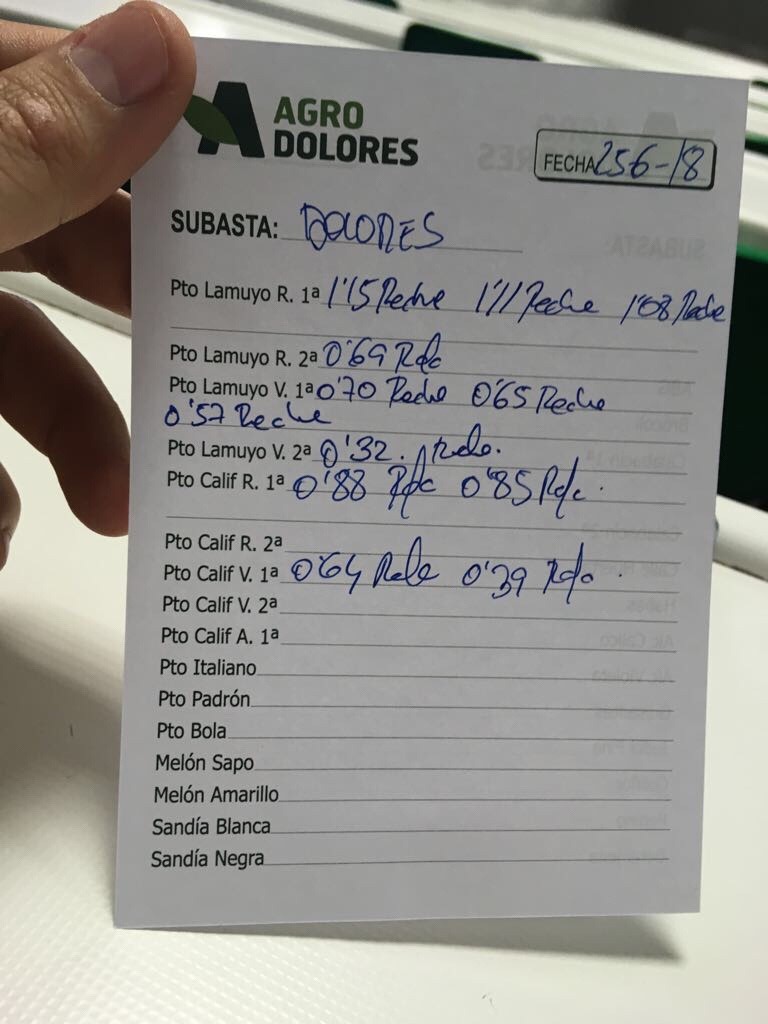 AGRO
DOLORES
FECHA 25-6-18
SUBASTA: DOLORES
Pto Lamuyo R. 1ª 1'15 Reche 1'11 Reche 1'08 Reche
Pto Lamuyo R. 2ª 0'69
Pto Lamuyo V. 1ª 0'70 Reche 0'65 Reche
0'57 Reche
Pto Lamuyo V. 2ª 0'32
Pto Calif R. 1ª 0'88 0'85
Pto Calif R. 2ª
Pto Calif V. 1ª 0'64 0'39
Pto Calif V. 2ª
Pto Calif A. 1ª
Pto Italiano
Pto Padrón
Pto Bola
Melón Sapo
Melón Amarillo
Sandía Blanca
Sandía Negra